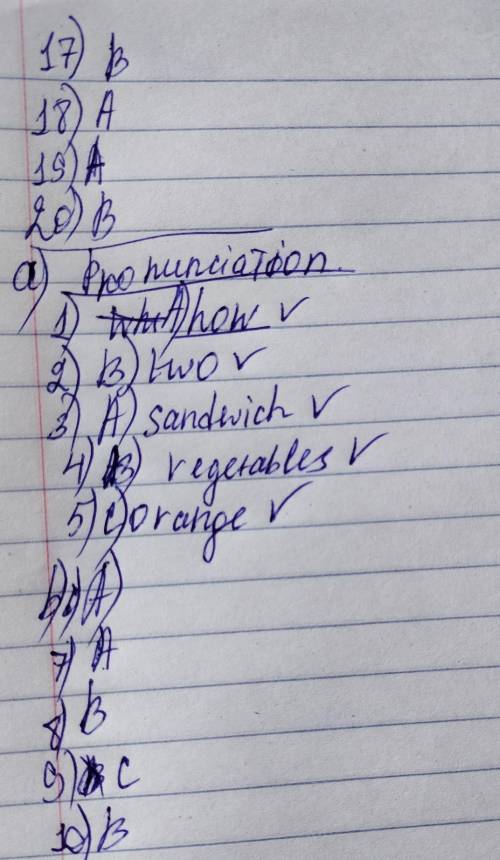 17) B
18) A
19) A
20) B
a) Pronunciation.
1) A) how ✓
2) B) two ✓
3) A) sandwich ✓
4) B) vegetables ✓
5) C) orange ✓
b) 6) A)
7) A
8) B
9) C
10) B